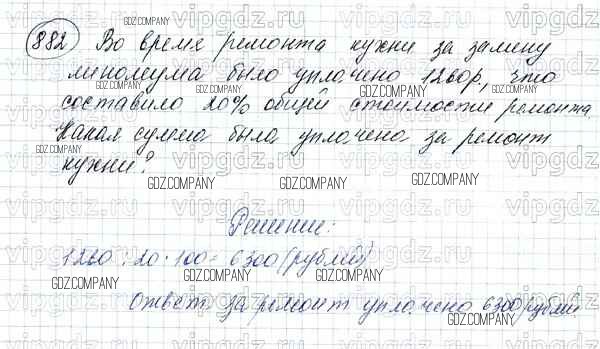 882 Во время ремонта кухни за замену
линолеума было уплачено 1260р, что
составило 20% общей стоимости ремонта.
Какая сумма была уплачена за ремонт
кухни?
Решение:
1260 : 20 · 100 = 6300 (рублей)
Ответ за ремонт уплачено 6300 рублей.
vipgdz.ru
GDZ.COMPANY